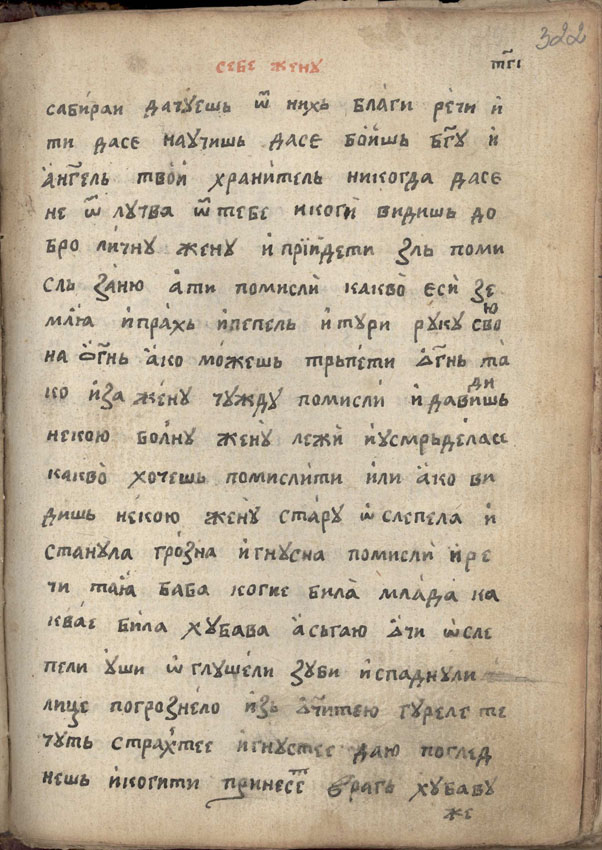 322
себе жену
тг҃і
сабіраи дачꙋешь ѿ нихь благи речи и
ти дасе наꙋчишь дасе боишь бг҃ꙋ и
анг҃ель твой хранитель никогда дасе
не ѿ лꙋтва ѿ тебе икоги видишь до
бро личнꙋ женꙋ и прїйдети зль поми
сль заню ати помисли какво еси зе
млꙗ ипрахь ипепель итꙋри рꙋкꙋ свою
на ѻг҃нь ако можешь трьпети ѻг҃нь та
ко иза женꙋ чꙋждꙋ помисли и дадивишь
некою болнꙋ женꙋ лежи иꙋсмрьделасе
какво хочешь помислити или ако ви
дишь некою женꙋ старꙋ ѡслепела и
станꙋла грозна игнꙋсна помисли ире
чи таꙗ баба когие била млада ка
квае била хꙋбава асьгаю ѻчи ѡсле
пели ꙋши ѡглꙋшели зꙋби испаднꙋли
лице погрознело изь ѻчитею гꙋреле те
чꙋть страхтее игнꙋстее даю поглед
нешь икогити принесе врагь хꙋбавꙋ
же